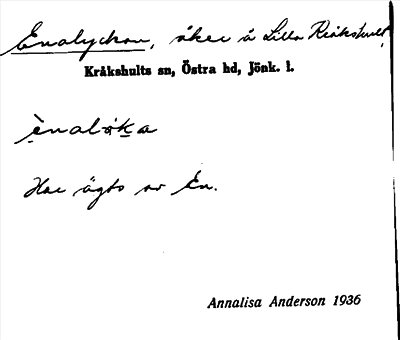 Enalyckan, åker å Lilla Kråkshult,
Kråkshults sn, Östra hd, Jönk. l.
ènalø̀ka
Har ägts av En.
Annalisa Anderson 1936